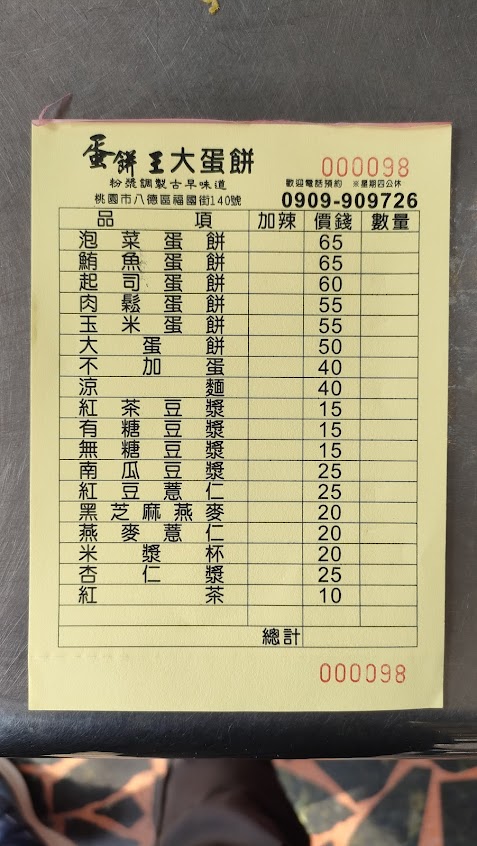 蛋餅王大蛋餅 000098
粉漿調製古早味道 歡迎電話預約 ※星期四公休
桃園市八德區福國街140號 0909-909726
品項 加辣 價錢 數量
泡菜蛋餅 65
鮪魚蛋餅 65
起司蛋餅 60
肉鬆蛋餅 55
玉米蛋餅 55
大蛋餅 50
不加蛋 40
涼麵 40
紅茶豆漿 15
有糖豆漿 15
無糖豆漿 15
南瓜豆漿 25
紅豆薏仁 25
黑芝麻燕麥 20
燕麥薏仁 20
米漿杯 20
杏仁漿 25
紅茶 10
總計
000098